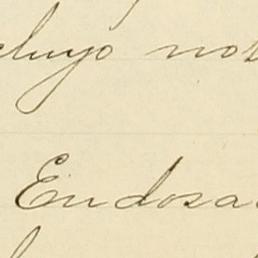 cluyo not
Endosa